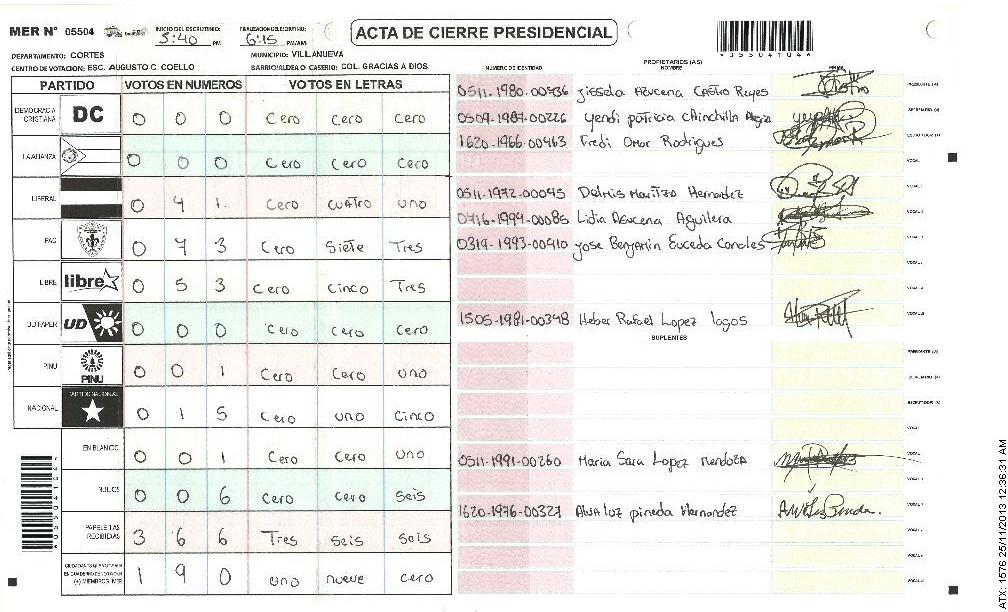 MER N° 05504 INICIO DEL ESCRUTINIO: 5:40 PM FINALIZACION DEL ESCRUTINIO: 6:15 PM/AM ACTA DE CIERRE PRESIDENCIAL
DEPARTAMENTO: CORTES MUNICIPIO: VILLANUEVA
CENTRO DE VOTACION: ESC. AUGUSTO C. COELLO BARRIO/ALDEA O CASERIO: COL. GRACIAS A DIOS
PARTIDO VOTOS EN NUMEROS VOTOS EN LETRAS
DEMOCRACIA CRISTIANA DC 0 0 0 Cero Cero Cero
LA ALIANZA 0 0 0 Cero Cero Cero
LIBERAL 0 4 1 Cero cuatro uno
PAC 0 7 3 Cero Siete Tres
LIBRE libre 0 5 3 Cero Cinco Tres
UD FAPER UD 0 0 0 Cero Cero Cero
PINU PINU 0 0 1 Cero Cero uno
NACIONAL PARTIDO NACIONAL 0 1 5 Cero uno Cinco
EN BLANCO 0 0 1 Cero Cero uno
NULOS 0 0 6 Cero Cero seis
PAPELETAS RECIBIDAS 3 6 6 Tres seis seis
(+) MIEMBROS MER 1 9 0 uno nueve cero
NUMERO DE IDENTIDAD PROPIETARIOS (AS) NOMBRE FIRMA
0511-1980-00936 Jissela Azucena Castro Reyes PRESIDENTE (A)
0509-1987-00226 yendi patricia Chinchilla SECRETARIO (A)
1620-1966-00463 Fredi Omar Rodrigues ESCRUTADOR (A)
VOCAL I
0511-1972-00045 Delmis Maritza Hernandez
0716-1999-00085 Lidia Azucena Aguilera
0319-1993-00410 Jose Benjamin Euceda Canales
1505-1981-00348 Heber Rafael Lopez lagos
SUPLENTES
PRESIDENTE (A)
SECRETARIO (A)
ESCRUTADOR (A)
0511-1991-00260 Maria Sara Lopez Mendoza
1620-1976-00327 Alva luz pineda Hernandez
ATX: 1576 25/11/2013 12:36:31 AM